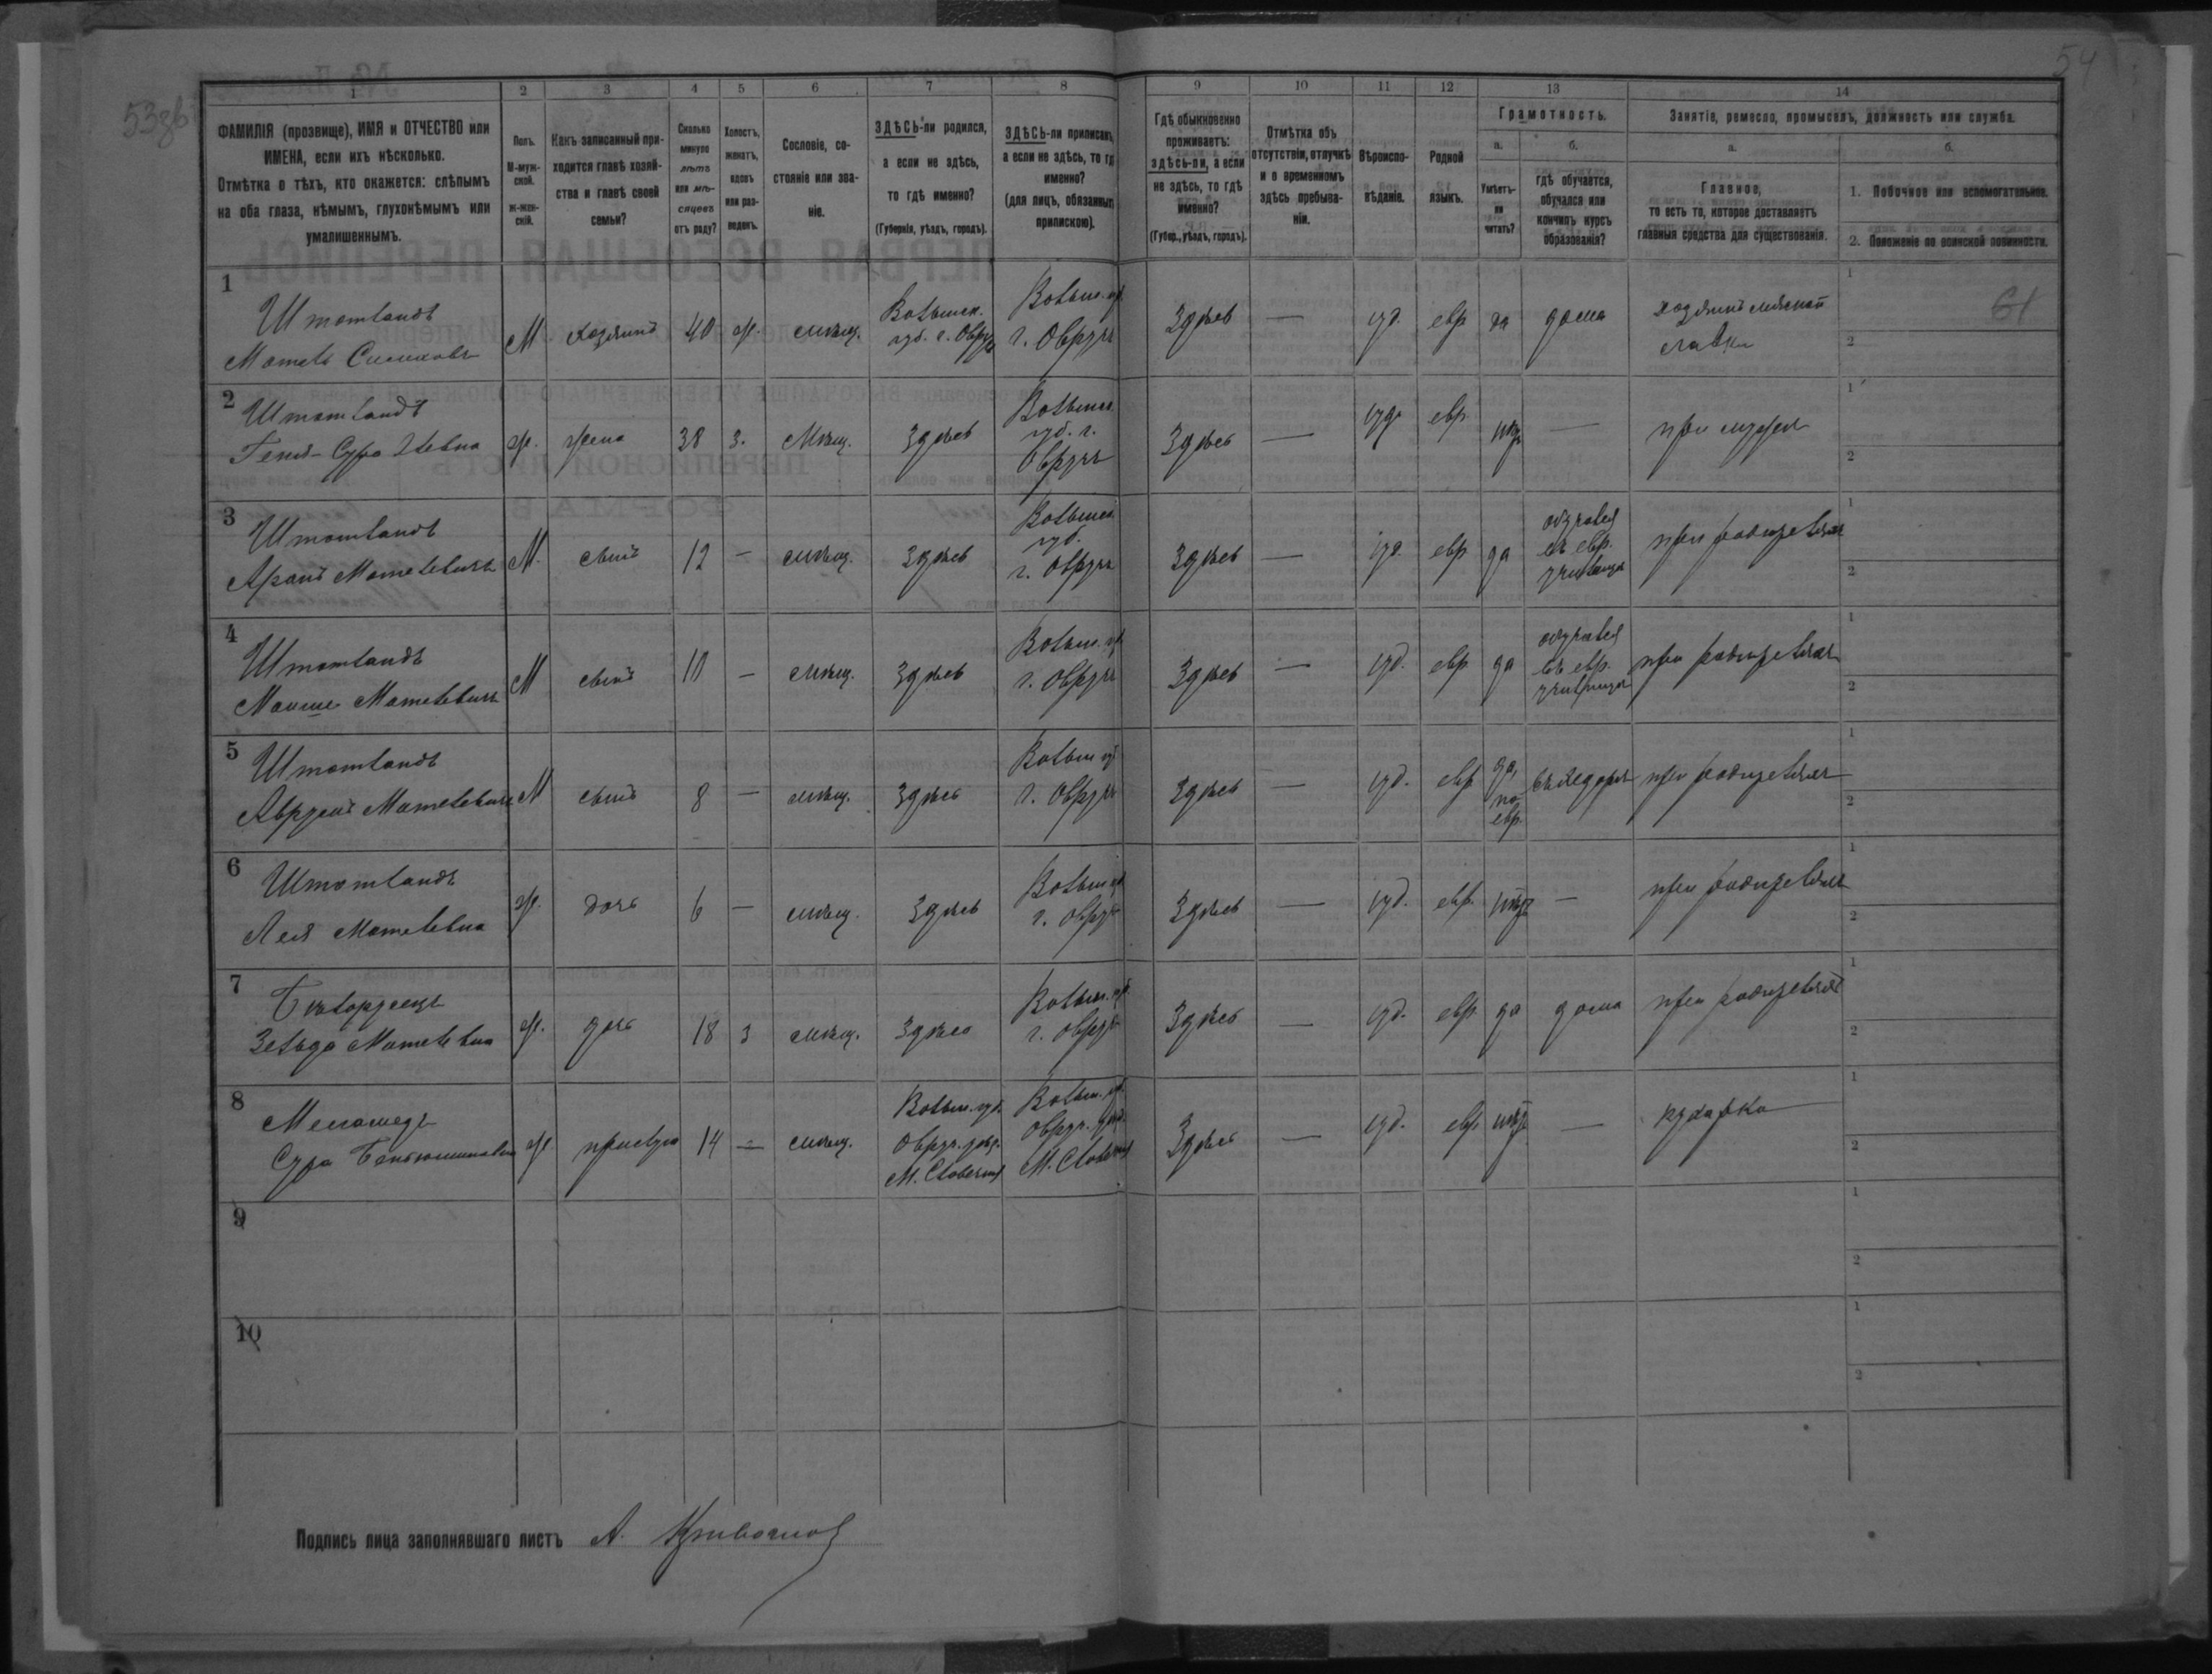 53об
54
1 2 3 4 5 6 7 8 9 10 11 12 13 14
ФАМИЛІЯ (прозвище), ИМЯ и ОТЧЕСТВО или
ИМЕНА, если ихъ нѣсколько.
Отмѣтка о тѣхъ, кто окажется: слѣпымъ
на оба глаза, нѣмымъ, глухонѣмымъ или
умалишеннымъ.
Полъ.
М-муж-
ской.
Ж-жен-
скій.
Какъ записанный при-
ходится главѣ хозяй-
ства и главѣ своей
семьи?
Сколько
минуло
лѣтъ
или мѣ-
сяцевъ
отъ роду?
Холостъ,
женатъ,
вдовъ
или раз-
веденъ.
Сословіе, со-
стояніе или зва-
ніе.
ЗДѢСЬ-ли родился,
а если не здѣсь,
то гдѣ именно?
(Губернія, уѣздъ, городъ).
ЗДѢСЬ-ли приписанъ,
а если не здѣсь, то гдѣ
именно?
(для лицъ, обязанныхъ
припискою).
Гдѣ обыкновенно
проживаетъ:
здѣсь-ли, а если
не здѣсь, то гдѣ
именно?
(Губер., уѣздъ, городъ).
Отмѣтка объ
отсутствіи, отлучкѣ
и о временномъ
здѣсь пребыва-
ніи.
Вѣроиспо-
вѣданіе.
Родной
языкъ.
Грамотность.
а.
Умѣетъ-
ли
читать?
б.
гдѣ обучается,
обучался или
кончилъ курсъ
образованія?
Занятіе, ремесло, промыселъ, должность или служба.
а.
Главное,
то есть то, которое доставляетъ
главныя средства для существованія.
б.
1. Побочное или вспомогательное.
2. Положеніе по воинской повинности.
1
Штотландъ
Мотель
М хозяинъ 40 ж. мѣщ.
Волынск.
губ. г. Овруч
Волын. губ.
г. Овручъ
Здѣсь — іуд. евр да дома
хозяинъ мясной
лавки
61
1
2
2
Штотландъ
Геня-Сура
ж. жена 38 з. мѣщ. Здѣсь
Волынск.
губ. г.
Овручъ
Здѣсь — іуд. евр. нѣтъ — при мужѣ
1
2
3
Штотландъ
Аронъ Мотелевичъ
М. сынъ 12 — мѣщ. Здѣсь
Волынск.
губ.
г. Овручъ
Здѣсь — іуд. евр да
обучался
въ евр.
училищѣ
при родителяхъ
1
2
4
Штотландъ
Мошше Мотелевичъ
М сынъ 10 — мѣщ. Здѣсь
Волын. губ
г. Овручъ
Здѣсь — іуд. евр да
обучался
въ евр.
училищѣ
при родителяхъ
1
2
5
Штотландъ
Аврумъ Мотелевичъ
М сынъ 8 — мѣщ. Здѣсь
Волын губ
г. Овручъ
Здѣсь — іуд. евр
да,
по
евр.
въ хедерѣ при родителяхъ
1
2
6
Штотландъ
Лея Мотелевна
ж. дочь 6 — мѣщ. Здѣсь
Волын губ
г. Овруч
Здѣсь — іуд. евр. нѣтъ — при родителяхъ
1
2
7
Бѣлоруссецъ
Зельда Мотелевна
ж. дочь 18 з мѣщ. Здѣсь
Волын. губ.
г. Овруч
Здѣсь — іуд. евр. да дома при родителяхъ
1
2
8
Сура
ж. прислуга 14 — мѣщ.
Волын. губ.
Овруч. уѣзд.
М. Словечно
Волын. губ.
Овруч. уѣзд.
М. Словечно
Здѣсь — іуд. евр нѣтъ — кухарка
1
2
9
1
2
10
1
2
Подпись лица заполнявшаго листъ А.